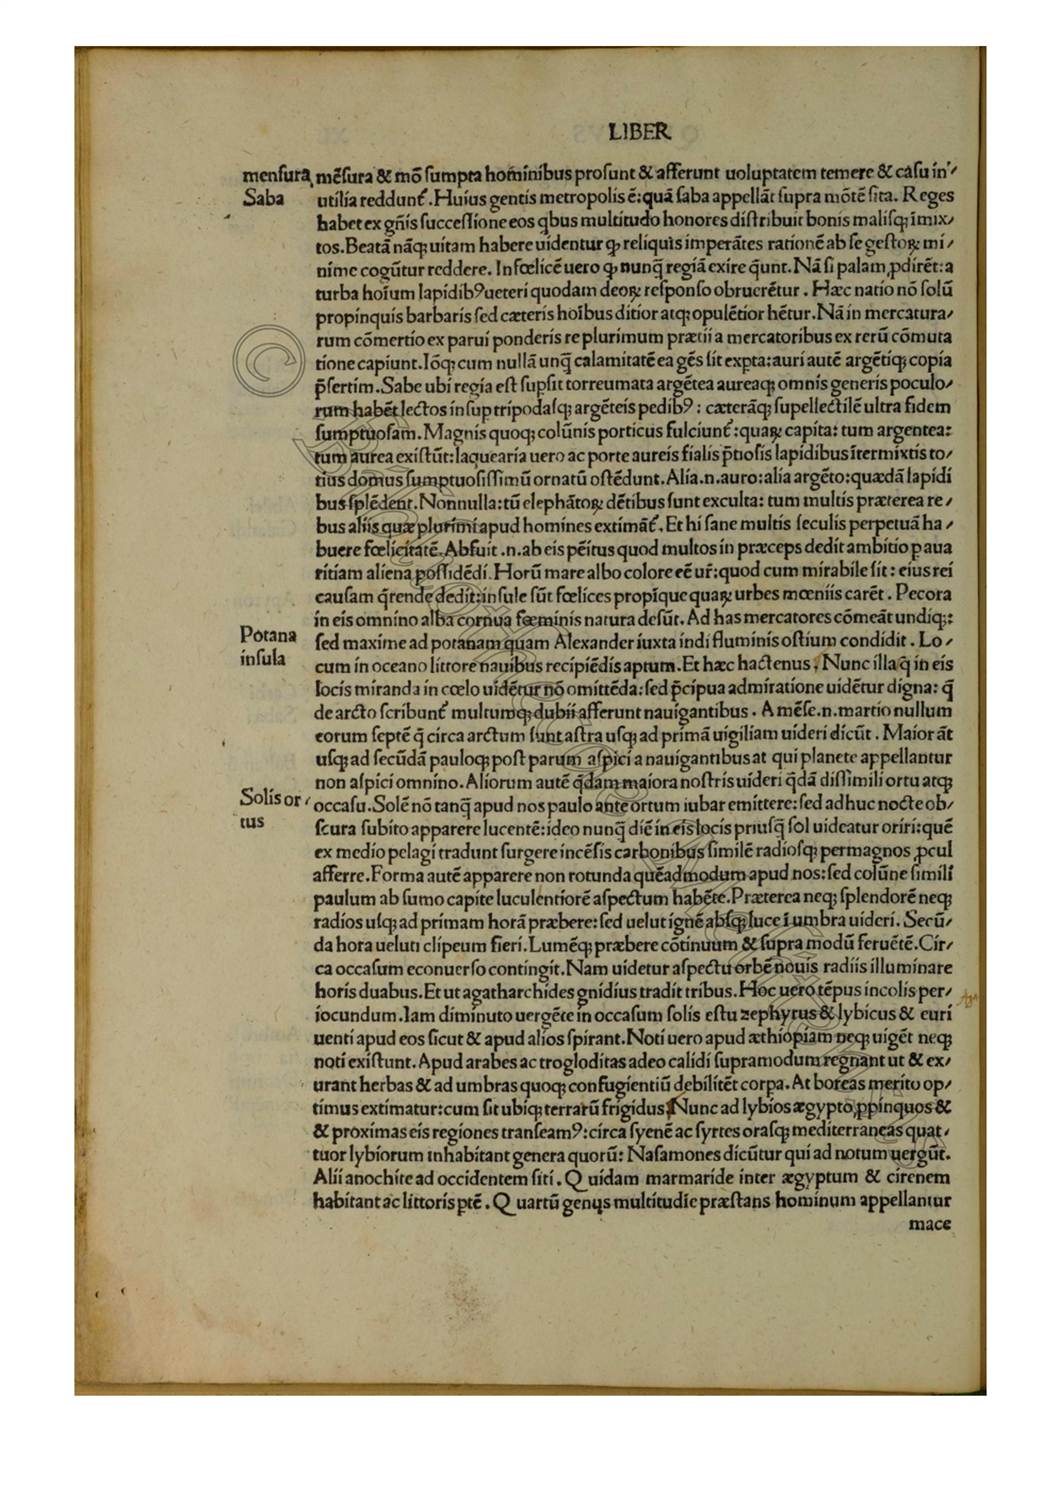 LIBER
mensura
Saba
mēsura & mō sumpta hominibus prosunt & afferunt uoluptatem temere & casu in/
utilia reddunt᷑. Huius gentis metropolis ē: quā saba appellāt supra mōte sita. Reges
habet ex gn̄is successione eos qbus multitudo honores distribuit bonis malisq; īmix/
tos. Beatā nāq; uitam habere uidentur ꝙ reliquis imperātes rationē ab se gestoꝝ mi/
nime cogūtur reddere. Infœlicē uero ꝙ nunq̄ regiā exire q̄unt. Nā si palam ꝓdirēt: a
turba hoīum lapidibꝰ ueteri quodam deoꝝ responso obruerētur. Hæc natio nō solū
propinquis barbaris sed cæteris hoībus ditior atq; opulētior hētur. Nā in mercatura/
rum cōmertio ex parui ponderis re plurimum prætii a mercatoribus ex rerū cōmuta
tione capiunt. Iō q; cum nullā unq̄ calamitatē ea gēs sit expta: auri autē argētiq; copia
p̄sertim. Sabe ubi regia est supsit torreumata argētea aureaq; omnis generis poculo/
rum habēt lectos insup tripodasq; argēteis pedibꝰ: cæterāq; supellectilē ultra fidem
sumptuosam. Magnis quoq; colūnis porticus fulciunt᷑: quaꝝ capita: tum argentea:
tum aurea existūt: laquearia uero ac porte aureis fialis p̄tiosis lapidibus ītermixtis to/
tius domus sumptuosissimū ornatū ostēdunt. Alia .n. auro: alia argēto: quædā lapidi
bus splēdent. Nonnulla: tū elephātoꝝ dētibus sunt exculta: tum multis præterea re/
bus aliis quæ plurimi apud homines extimāt᷑. Et hi sane multis seculis perpetuā ha/
buere fœlicitatē. Abfuit .n. ab eis pēitus quod multos in præceps dedit ambitio ꝑ aua
ritiam aliena possidēdi. Horū mare albo colore eē ur̄: quod cum mirabile sit: eius rei
causam q̄rende dedit: insule sūt fœlices propīque quaꝝ urbes mœniis carēt. Pecora
in eis omnino alba cornua fœminis natura desūt. Ad has mercatores cōmeāt undiq;:
Potana
insula
sed maxime ad potanam quam Alexander iuxta indi fluminis ostium condidit. Lo/
cum in oceano littore nauibus recipiēdis aptum. Et hæc hactenus. Nunc illa q̄ in eis
locis miranda in cœlo uidētur nō omittēda: sed p̄cipua admiratione uidētur digna: q̄
de arcto scribunt᷑ multumq; dubii afferunt nauigantibus. A mēse .n. martio nullum
eorum septē q̄ circa arctum sunt astra usq; ad primā uigiliam uideri dicūt. Maior āt
usq; ad secūdā pauloq; post parum aspici a nauigantibus at qui planete appellantur
non aspici omnino. Aliorum autē q̄dam maiora nostris uideri q̄dā dissimili ortu atq;
Solis or/
tus
occasu. Solē nō tanq̄ apud nos paulo ante ortum iubar emittere: sed adhuc nocte ob/
scura subito apparere lucentē: ideo nunq̄ diē in eis locis priusq̄ sol uideatur oriri: quē
ex medio pelagi tradunt surgere incēsis carbonibus similē radiosq; permagnos ꝓcul
afferre. Forma autē apparere non rotunda quēadmodum apud nos: sed colūne simili
paulum ab sumo capite luculentiorē aspectum habēte. Præterea neq; splendorē neq;
radios usq; ad primam horā præbere: sed uelut ignē absq; luce ī umbra uideri. Secū/
da hora ueluti clipeum fieri. Lumēq; præbere cōtinuum & supra modū feruētē. Cir/
ca occasum econuerso contingit. Nam uidetur aspectu orbē nouis radiis illuminare
horis duabus. Et ut agatharchides gnidius tradit tribus. Hoc uero tēpus incolis per/
iocundum. Iam diminuto uergēte in occasum solis estu zephyrus & lybicus & euri
uenti apud eos sicut & apud alios spirant. Noti uero apud æthiopiam neq; uigēt neq;
noti existunt. Apud arabes ac trogloditas adeo calidi supramodum regnant ut & ex/
urant herbas & ad umbras quoq; confugientiū debilitēt corpa. At boreas merito op/
timus extimatur: cum sit ubiq; terrarū frigidus. Nunc ad lybios ægypto ꝓpinquos &
& proximas eis regiones transeamꝰ: circa syenē ac syrtes orasq; mediterraneas quat/
tuor lybiorum inhabitant genera quorū: Nasamones dicūtur qui ad notum uergūt.
Alii anochite ad occidentem siti. Quidam marmaride inter ægyptum & cirenem
habitant ac littoris ptē. Quartū genus multitudīe præstans hominum appellantur
mace